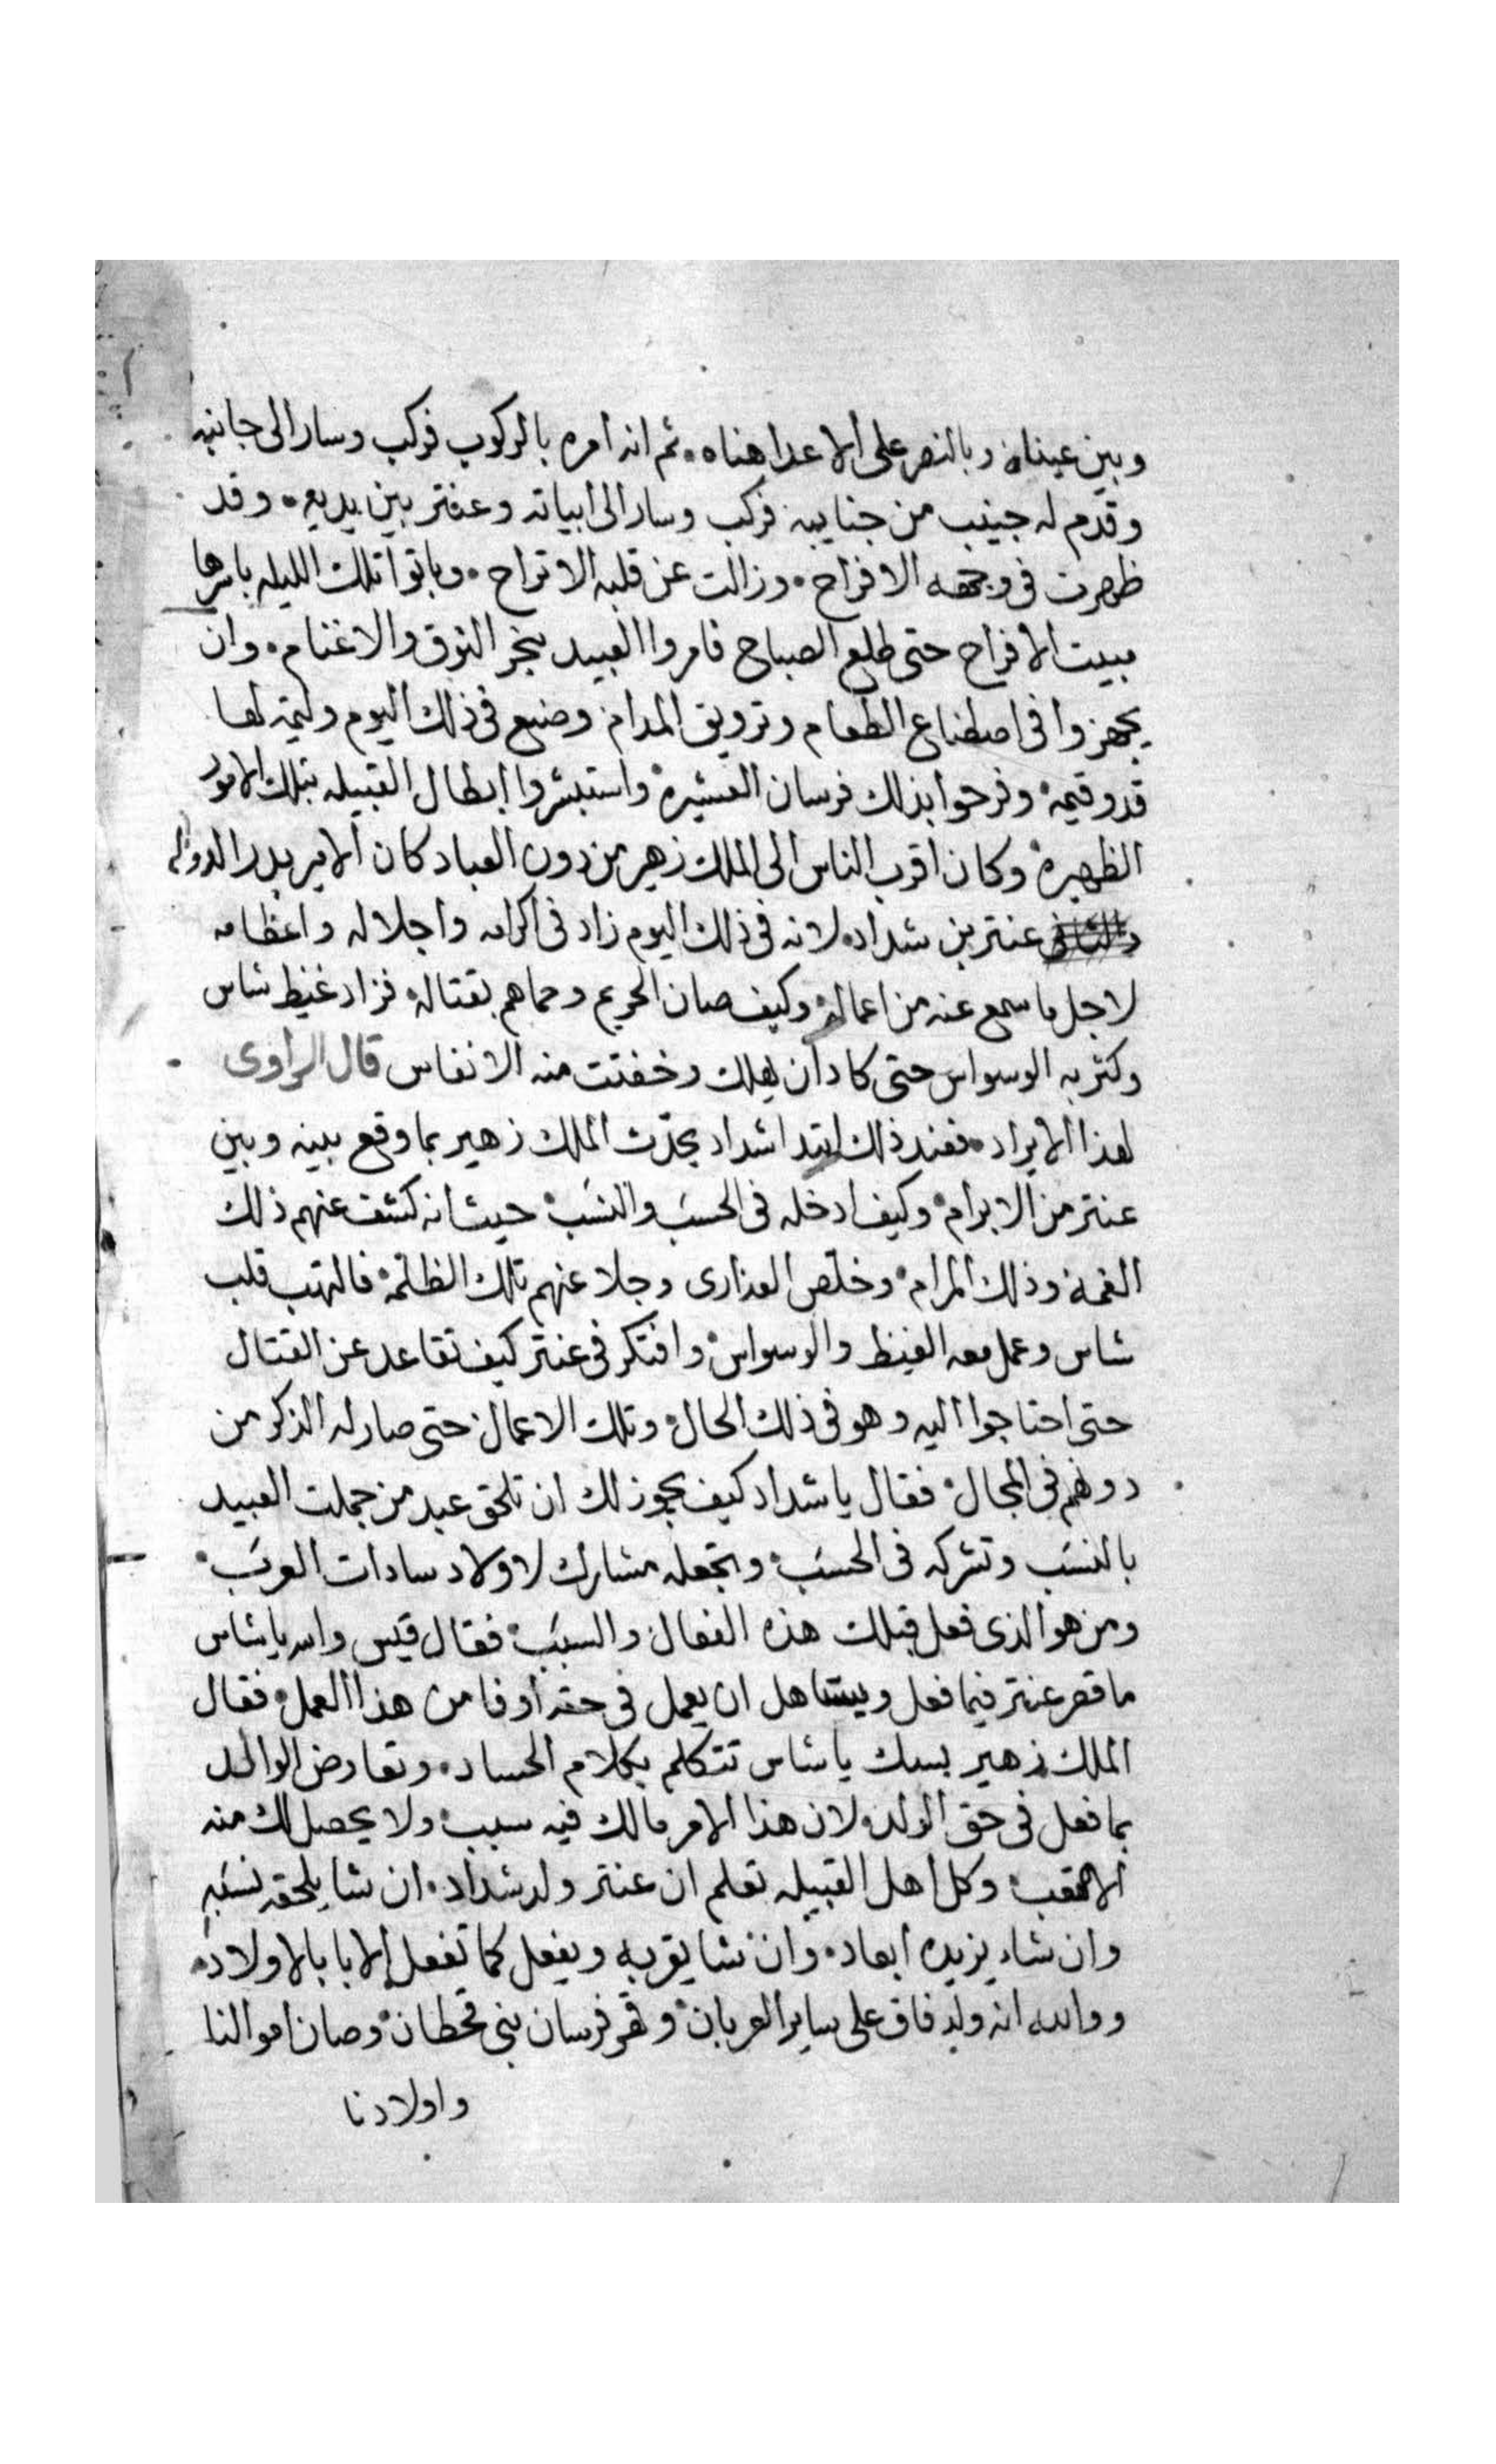 وبين عيناه وبالنصر على الاعدا هناه ثم انه امره بالركوب فركب وسار الى جانبه
وقدم له جنيب من جناييبه فركب وسار الى ابياته وعنتر بين يديه وقد
ظهرت فى وجهه الافراح وزالت عن قلبه الاتراح وباتوا تلك الليله باسرها
مبيت الافراح حتى طلع الصباح فامروا العبيد بنحر النوق والاغنام وان
يجهزوا فى اصطناع الطعام وترويق المدام وصنع فى ذلك اليوم وليمة لها
قدر وقيمة وفرحوا بذلك فرسان العشيرة واستبشروا ابطال القبيله بتلك الامور
الظهيرة وكان اقرب الناس الى الملك زهير من دون العباد كان الامير بدر الدوله
عنتر بن شداد لانه فى ذلك اليوم زاد فى اكرامه واجلاله واعظامه
لاجل ما سمع عنه من اعماله وكيف صان الحريم وحماهم بقتاله فزاد غيظ شاس
وكثر به الوسواس حتى كاد ان يهلك وخفتت منه الانفاس قال الراوى
لهذا الايراد فعند ذلك ابتدا شداد يحدّث الملك زهير بما وقع بينه وبين
عنتر من الابرام وكيف ادخله فى الحسَب والنسَب حيث انه كشف عنهم ذلك
الغمة وذلك المرام وخلّص العذارى وجلا عنهم تلك الظلمة فالتهب قلب
شاس وعمل معه الغيظ والوسواس وافتكر فى عنتر كيف تقاعد عن القتال
حتى احتاجوا اليه وهو فى ذلك الحال وتلك الاعمال حتى صار له الذكر من
دونهم فى المجال فقال يا شداد كيف يجوز لك ان تلحق عبد من جملت العبيد
بالنسَب وتشركه فى الحسَب وتجعله مشارك لاولاد سادات العرَب
ومن هو الذى فعل قبلك هذه الفعال والسبَب فقال قيس والله يا شاس
ما قصر عنتر فيما فعل ويستاهل ان يعمل فى حقه أوفا من هذا العمل فقال
الملك زهير بسك يا شاس تتكلم بكلام الحساد وتعارض الوالد
بما فعل فى حق الولد لان هذا الامر مالك فيه سبب ولا يحصل لك منه
الا التعب وكل اهل القبيله تعلم ان عنتر ولد شداد ان شا يلحقه نسَبه
وان شاء يزيده ابعاد وان شا يقربه ويفعل كما تفعل الابا بالاولاد
ووالله انه ولد فاق على ساير العربان وقهر فرسان بنى قحطان وصان اموالنا
واولادنا